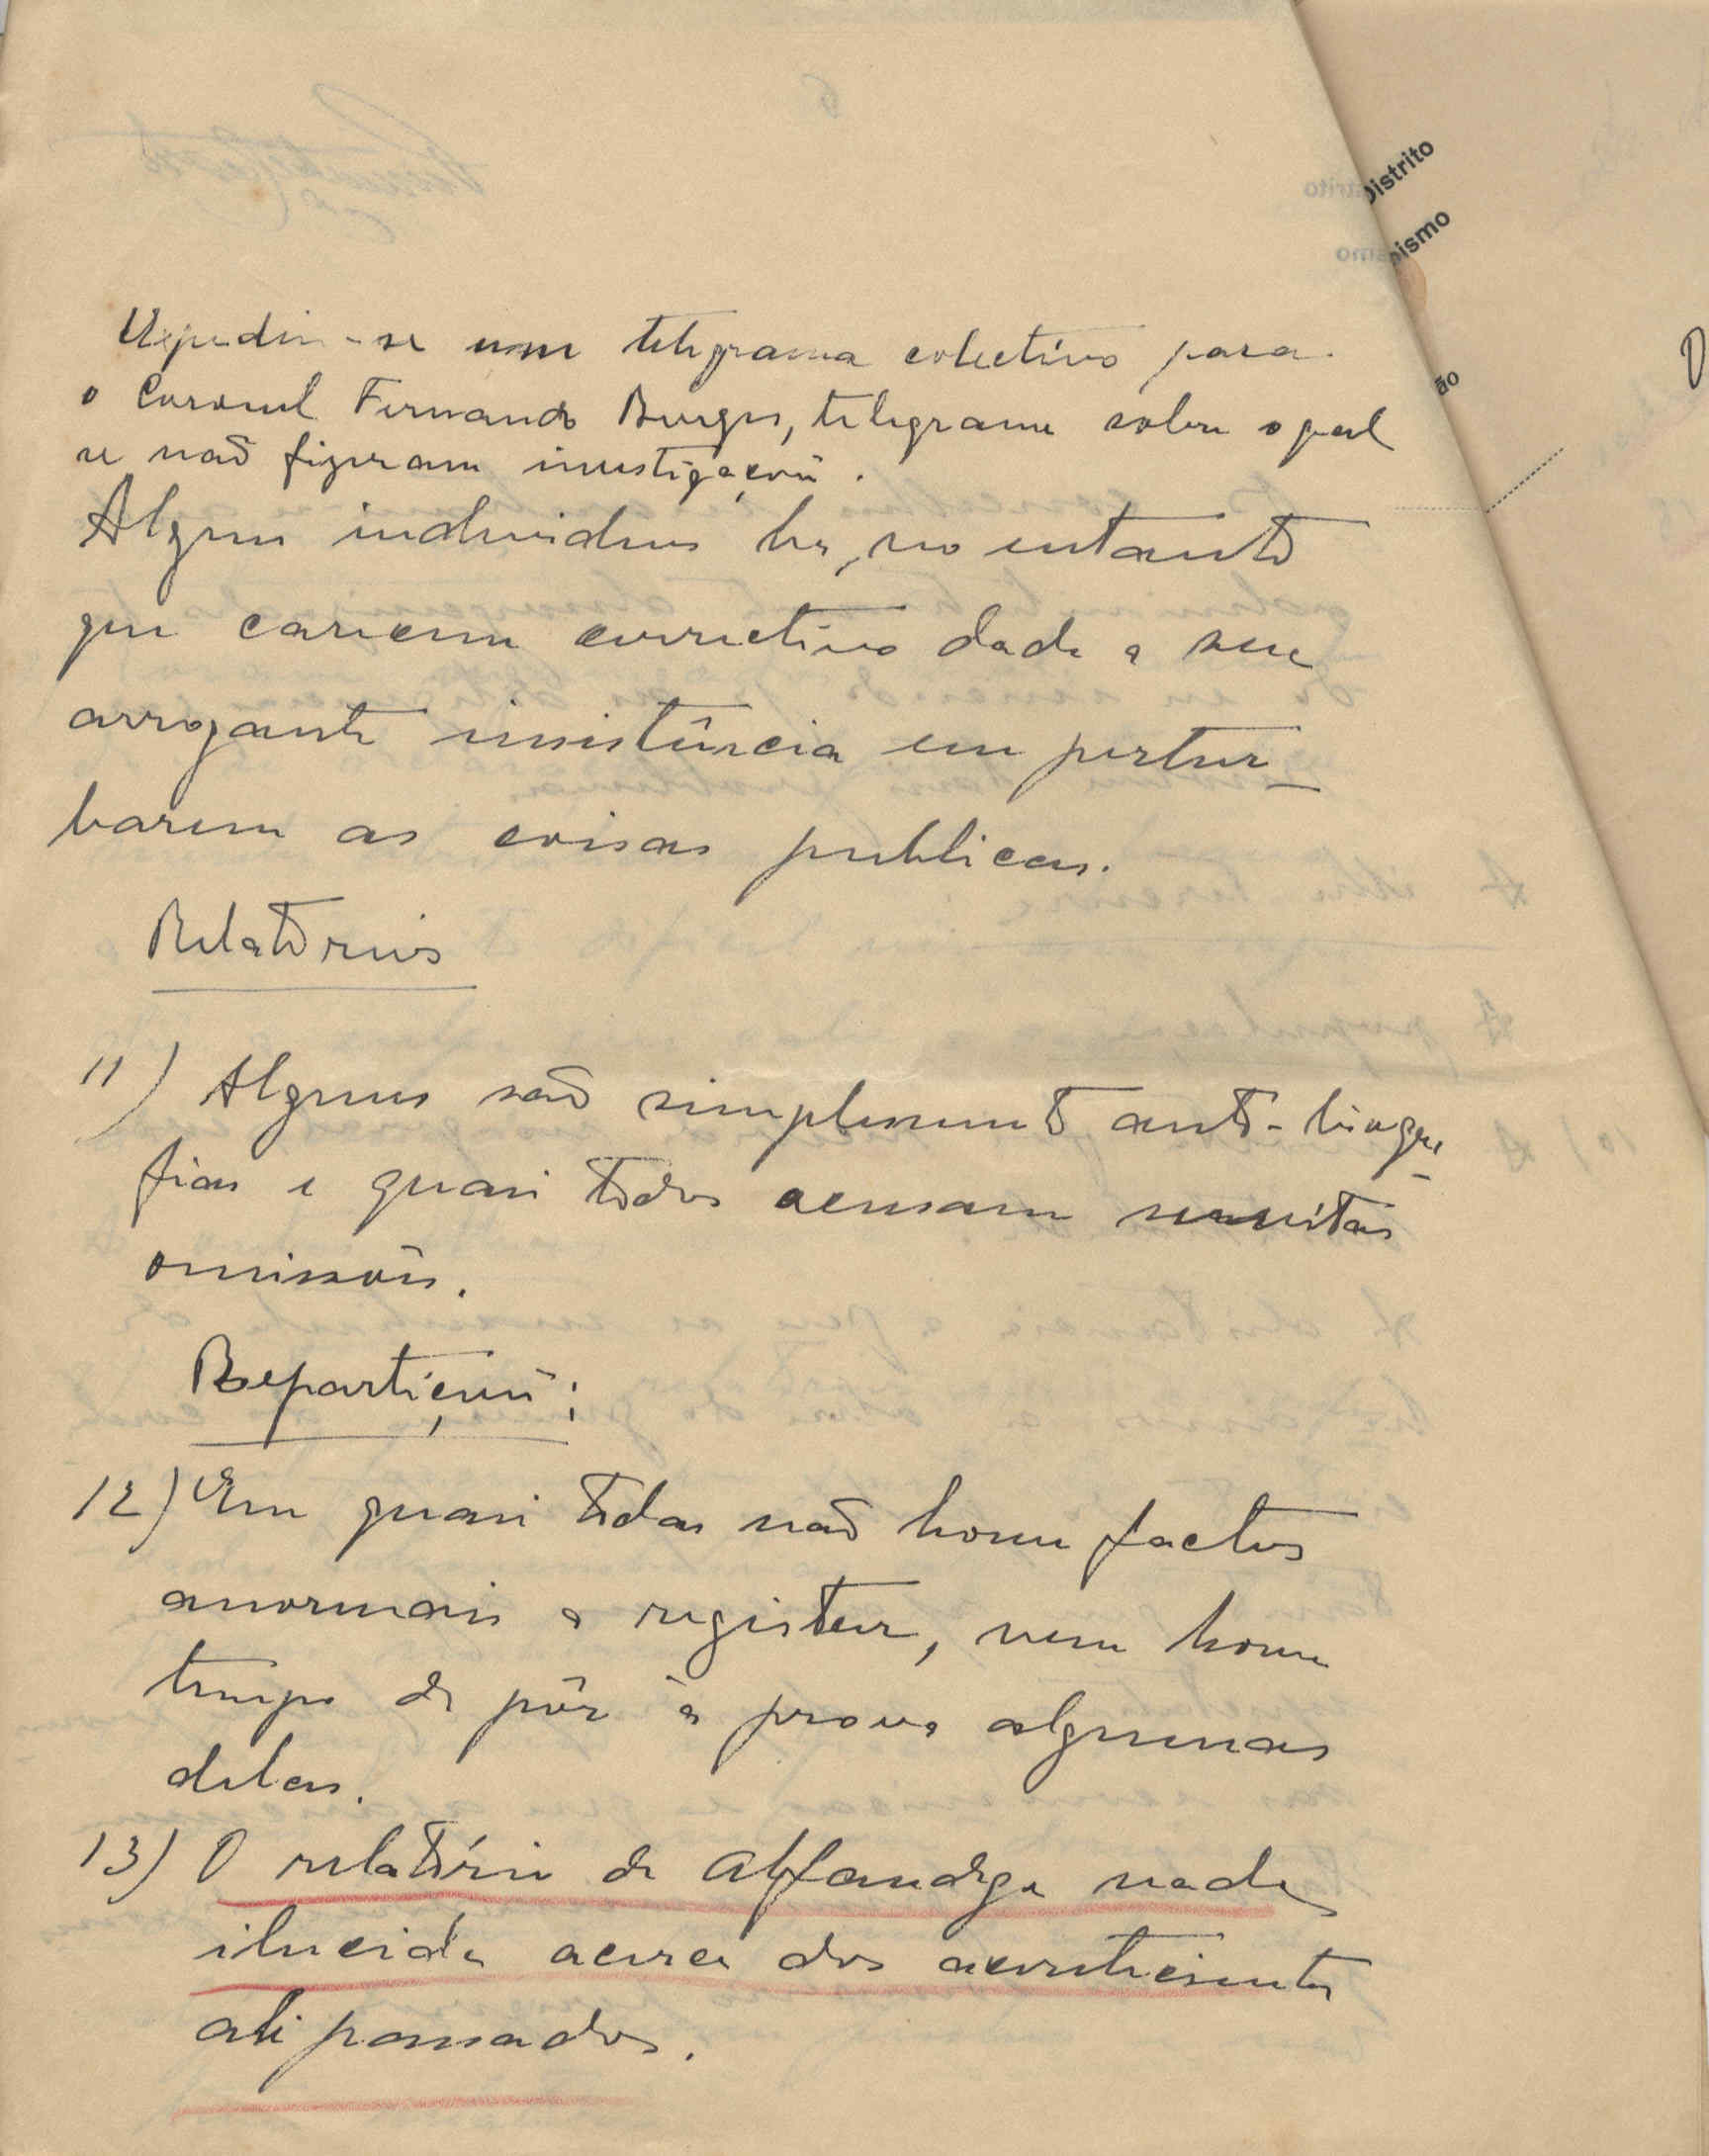 Expediu-se um telegrama colectivo para
o Coronel Fernando Burges, telegrama sobre o qual
se não fizeram investigações.
Alguns individuos ha, no entanto
que carecem correctivo dada a sua
arrogante insistência em pertur-
barem as coisas publicas.
Relatorios
11) Alguns são simplesmente auto-biogra-
fias e quasi todos acusam muitas
omissões.
Repartições:
12) Em quasi todas não houve factos
anormais a registar, nem houve
tempo de pôr à prova algumas
delas.
13) O relatório da Alfandega nada
ilucida acerca dos acontecimentos
ali passados.
Distrito
ão